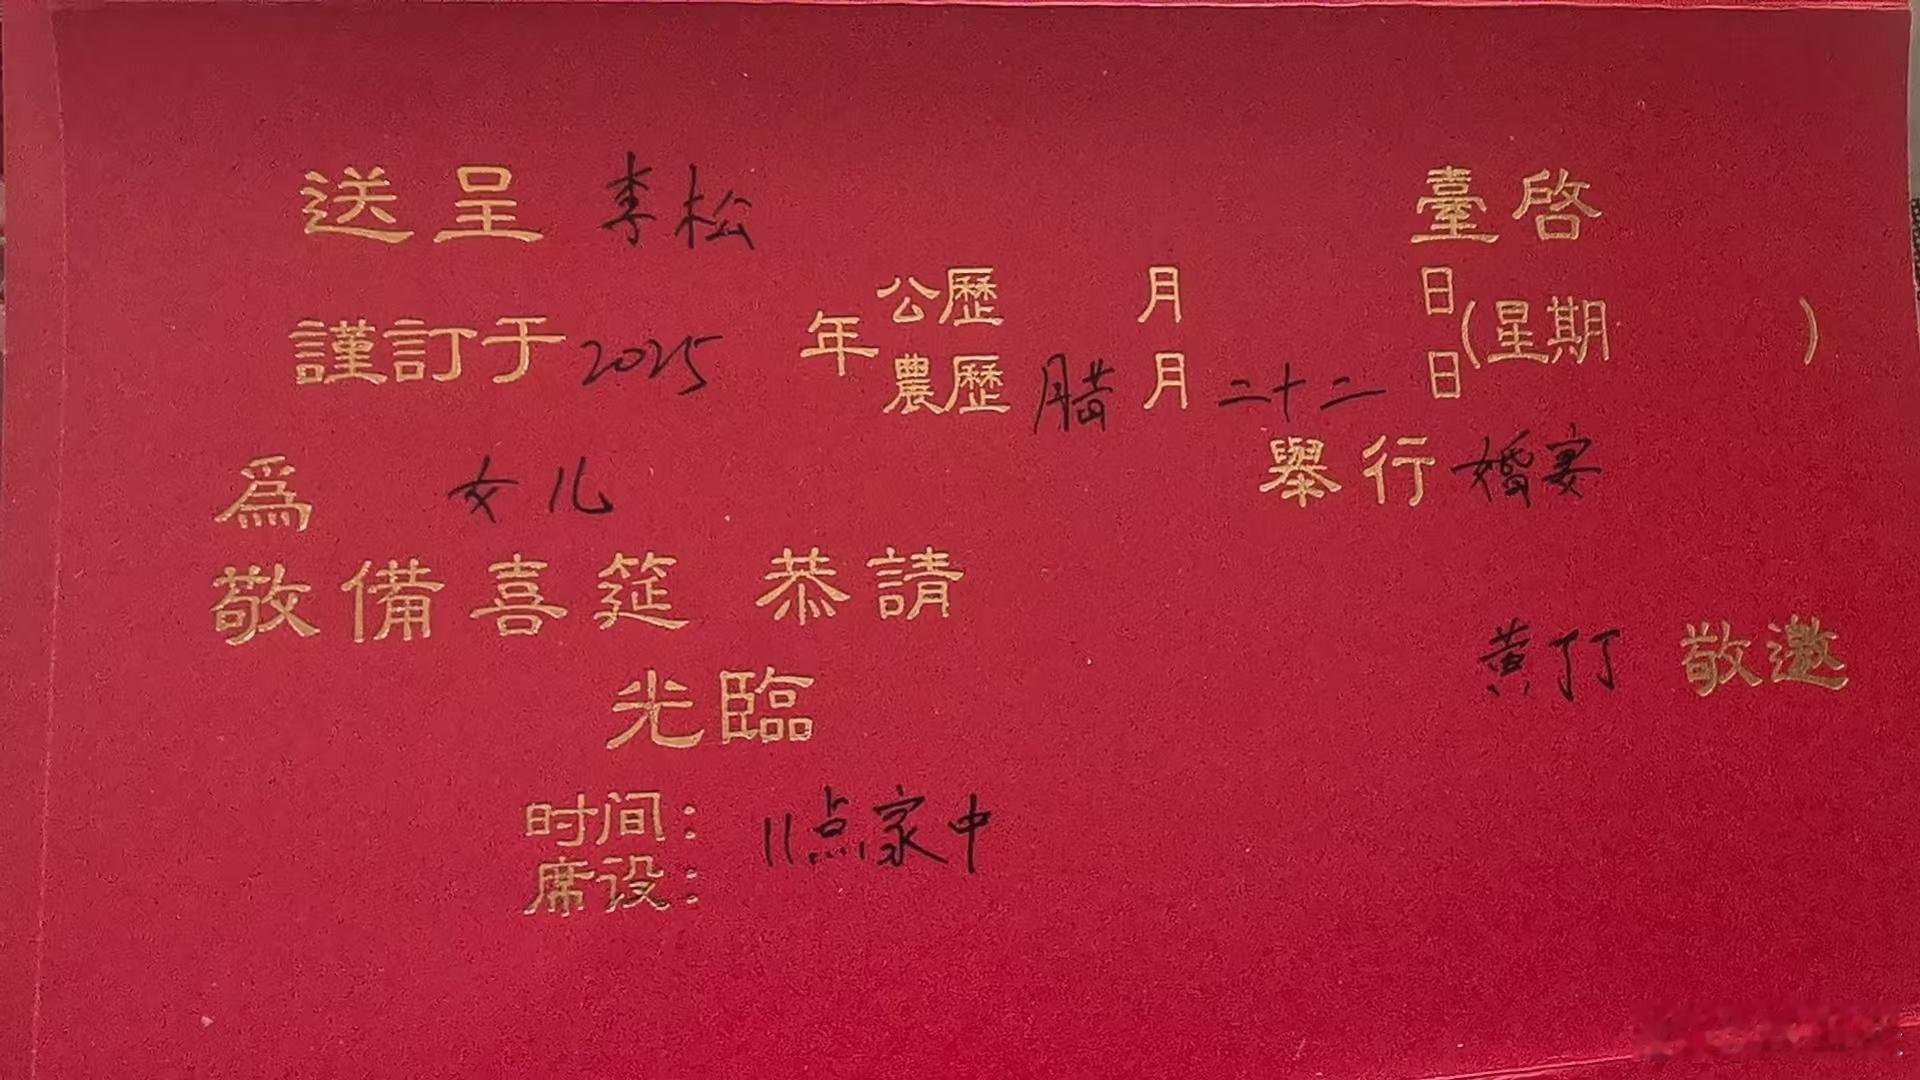 送呈 李松 臺啓
謹訂于 2025 年 公歷 月 日 (星期 )
農歷 腊 月 二十二 日
爲 女儿 舉行 婚宴
敬備喜筵 恭請
光臨
黄丁丁 敬邀
时间: 11点家中
席设: